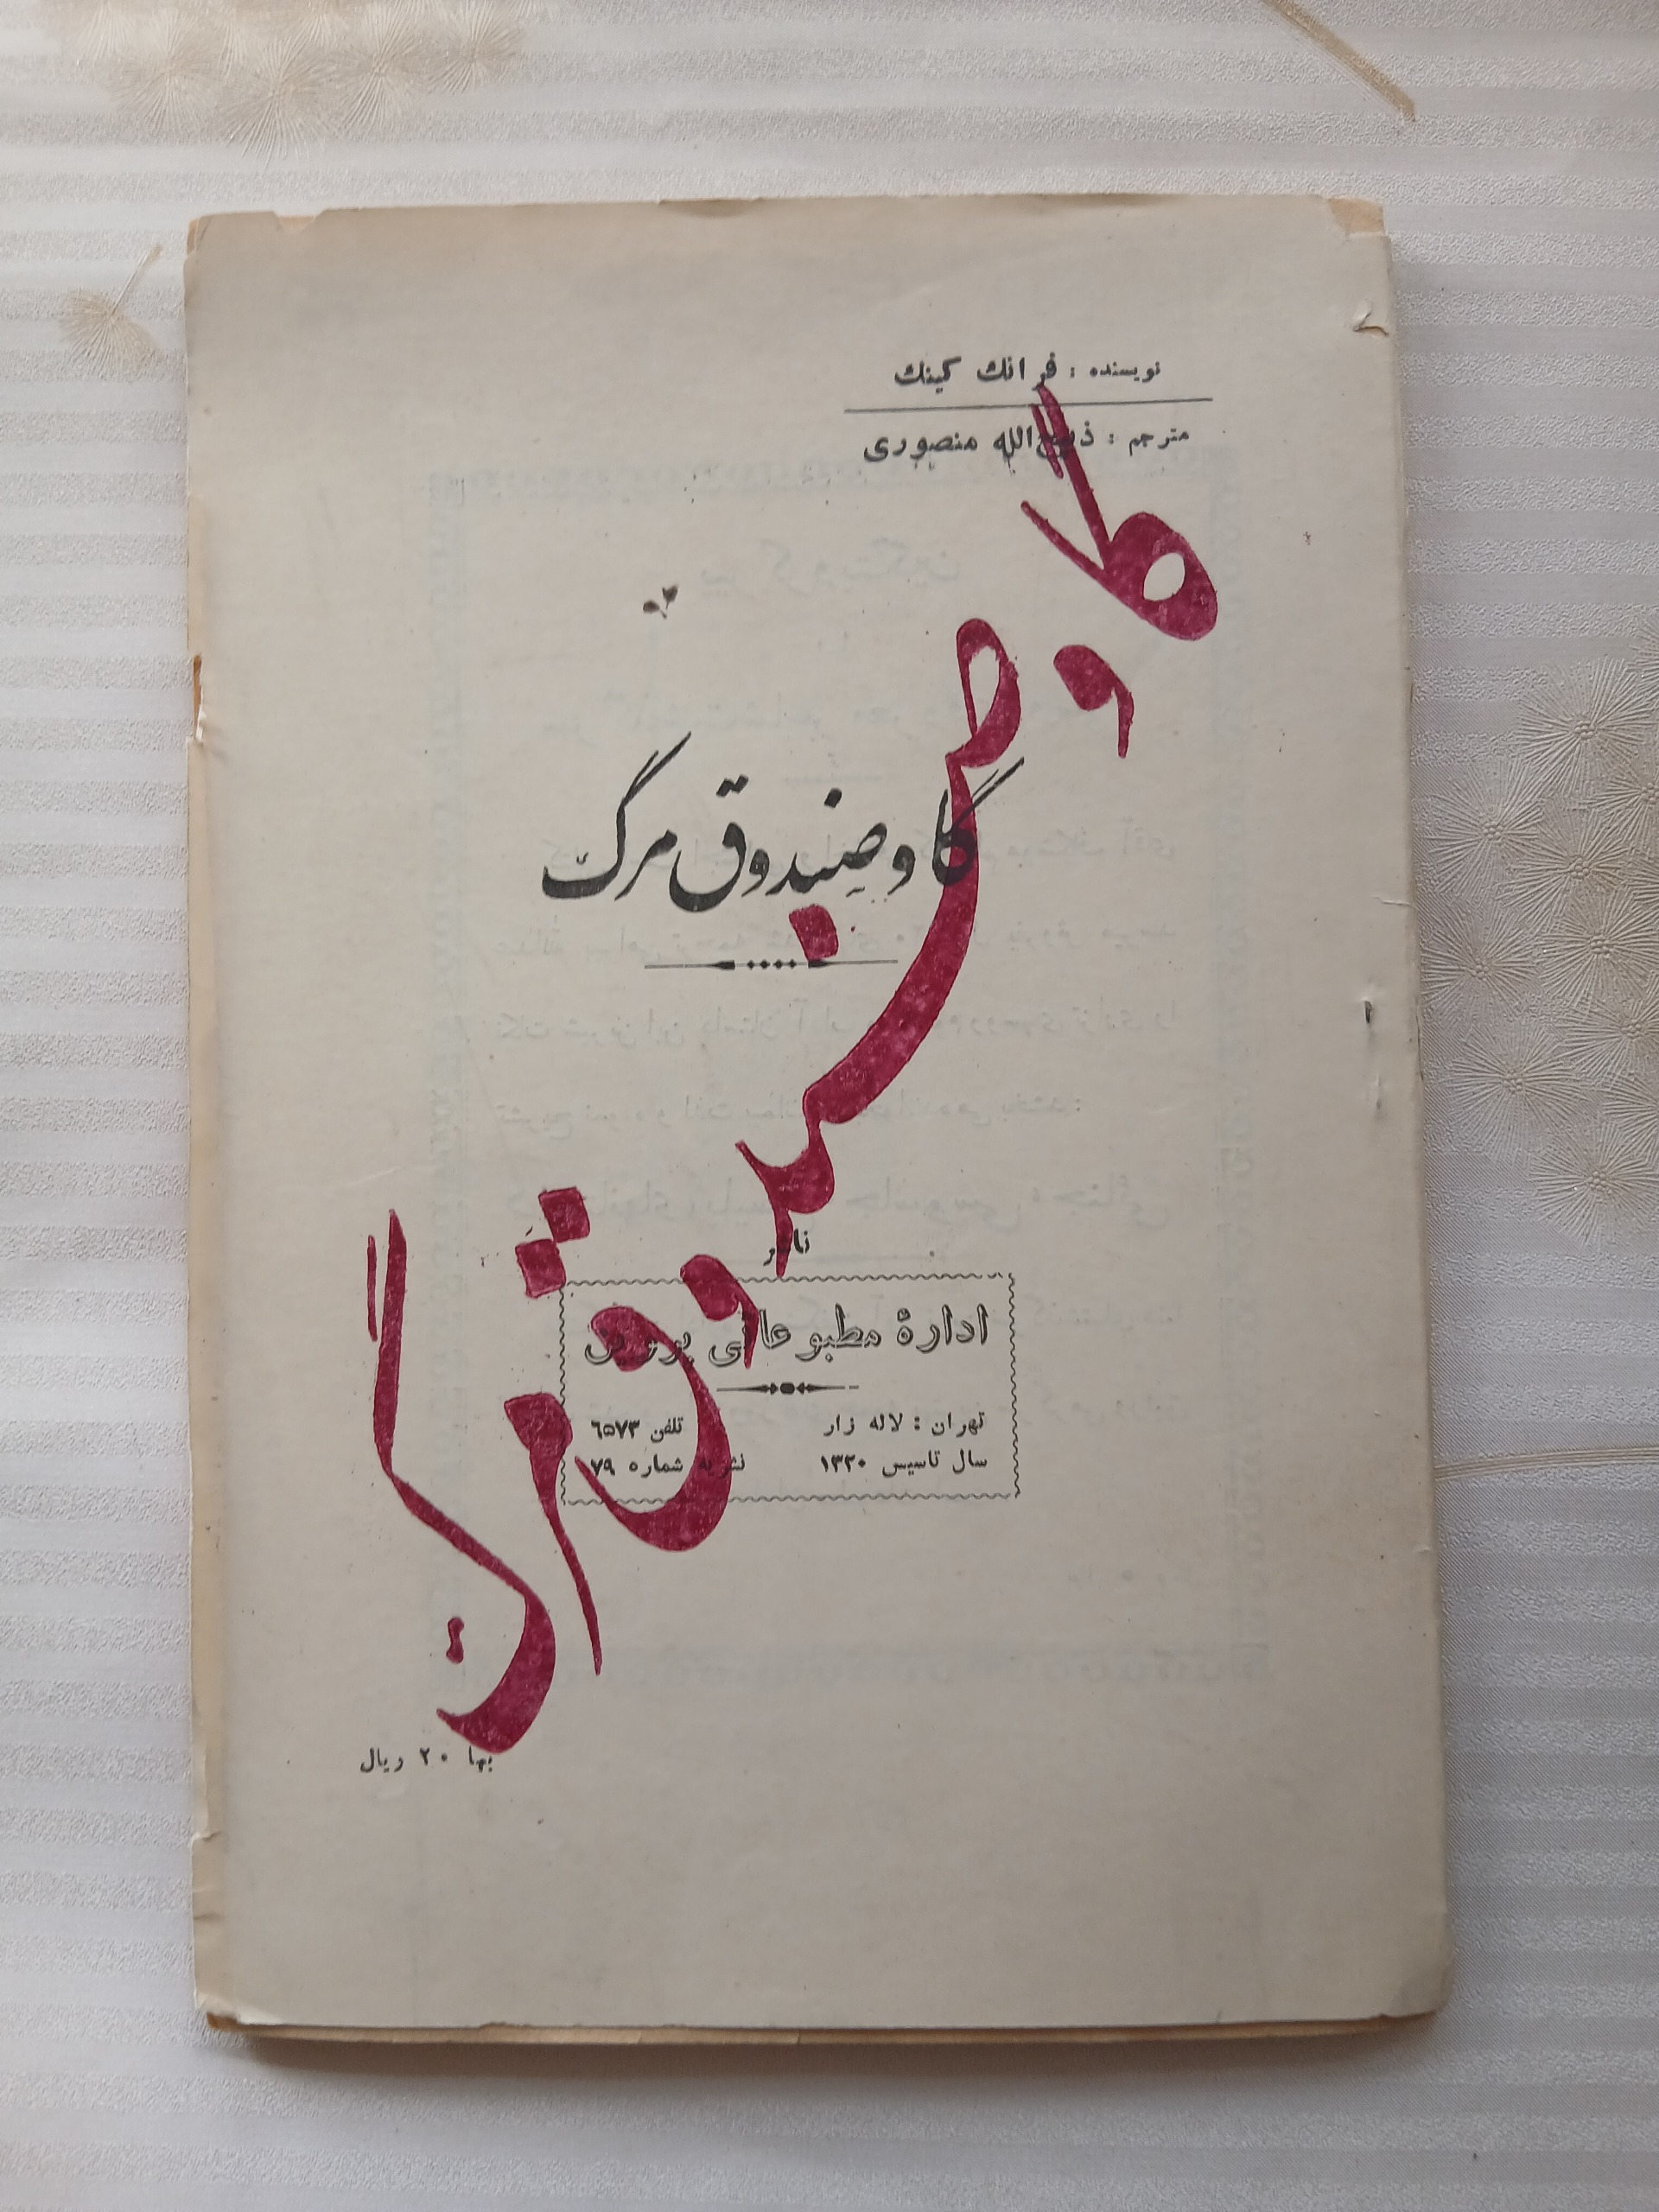 نویسنده : فرانك كینك
مترجم : ذبیح‌الله منصوری
گاوصندوق مرگ
گاوصندوق مرگ
ناشر
ادارهٔ مطبوعاتی پروین
تهران : لاله زار تلفن ٦٥٧٣
سال تاسیس ۱۳۲۰ نشریه شماره ۷۹
بها ۲۰ ریال